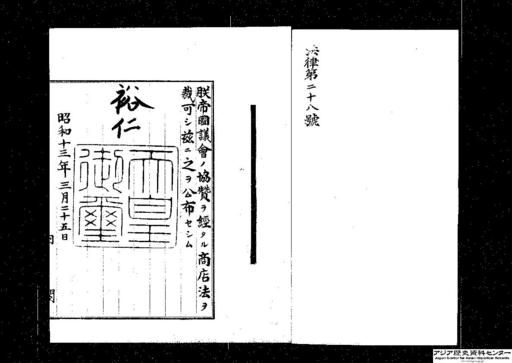 法律第二十八號
朕帝國議會ノ協贊ヲ經タル商店法ヲ
裁可シ玆ニ之ヲ公布セシム
裕仁
天皇御璽
昭和十三年三月二十五日
アジア歴史資料センター
Japan Center for Asian Historical Records